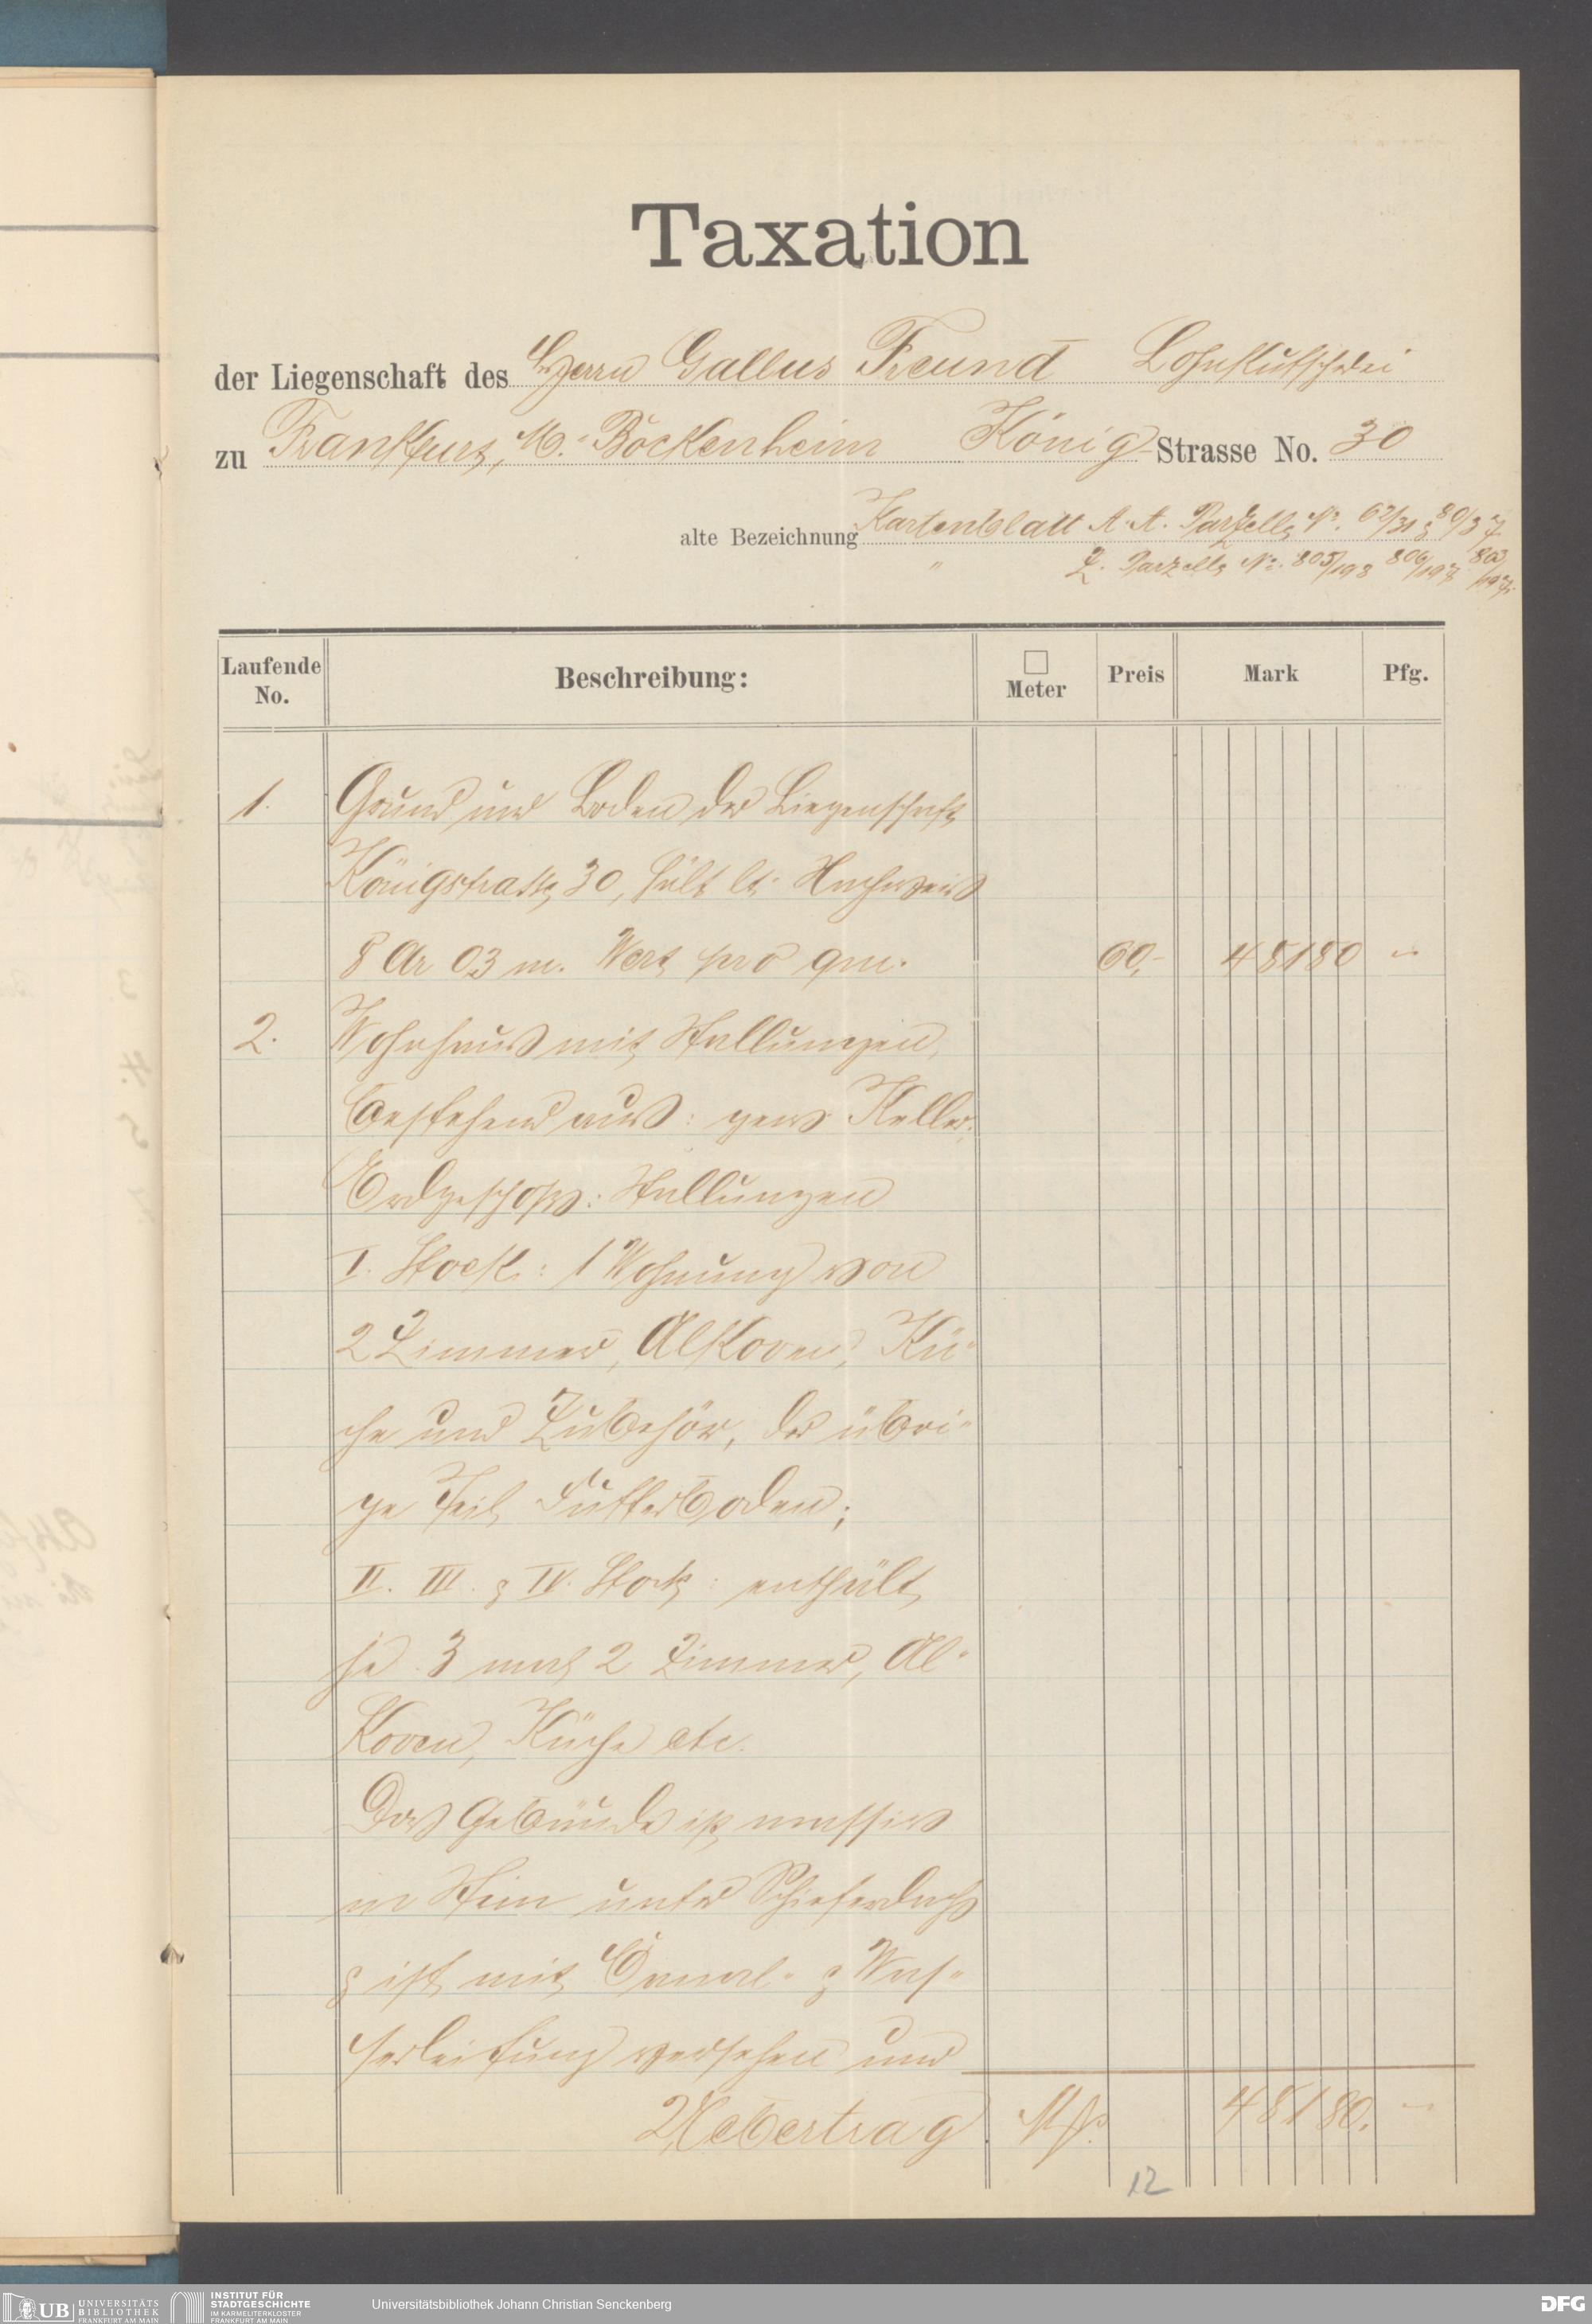 Taxation
der Liegenschaft des Herrn Gallus Freund Lohnkutscherei
zu Frankfurt, M.-Bockenheim König-Strasse No. 30
alte Bezeichnung Kartenblatt A. A. Parzelle No. 62/31 & 80/37
" Z. Parzelle No. 805/198 806/197 803/197.
Laufende No.
Beschreibung:
□ Meter
Preis
Mark
Pfg.
1. Grund und Boden der Liegenschaft
Königstraße 30, hält lt. Nachweis
8 Ar 03 m. Wert pro qm. 60,- 48180 -
2. Wohnhaus mit Stallungen,
bestehend aus: ganz Keller,
Erdgeschoß: Stallungen
I. Stock: 1 Wohnung von
2 Zimmer, Alkoven, Kü-
che und Zubehör, der übri-
ge Teil Futterboden;
II. III. & IV. Stock: enthält
je 3 mal 2 Zimmer, Al-
koven, Küche etc.
Das Gebäude ist massiv
in Stein unter Schieferdach
& ist mit Canal- & Was-
serleitung versehen und
Uebertrag Mk. 48180. -
12
UB UNIVERSITÄTS
BIBLIOTHEK
FRANKFURT AM MAIN
INSTITUT FÜR
STADTGESCHICHTE
IM KARMELITERKLOSTER
FRANKFURT AM MAIN
Universitätsbibliothek Johann Christian Senckenberg
DFG